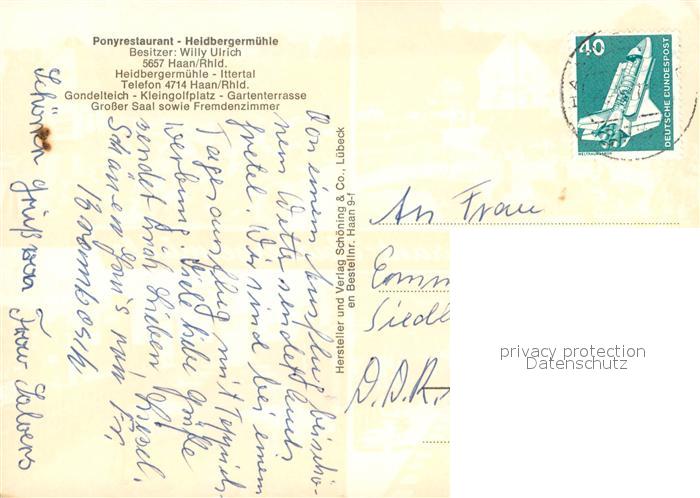 Ponyrestaurant - Heidbergermühle
Besitzer: Willy Ulrich
5657 Haan/Rhld.
Heidbergermühle - Ittertal
Telefon 4714 Haan/Rhld.
Gondelteich - Kleingolfplatz - Gartenterrasse
Großer Saal sowie Fremdenzimmer
Von einem Ausflug bei schö-
nem Wetter sendet Euch
Wir sind bei einem
Tagesausflug mit Teppich-
werbung. Viele liebe Grüße
sendet Euch Lieben
Schönen Gruß von Fr.
Schönen Gruß von Frau
Hersteller und Verlag Schöning & Co., Lübeck
en Bestellnr. Haan 9-f
40
DEUTSCHE BUNDESPOST
WELTRAUMLABOR
An Frau
Emm
Siedl
D.D.R.
privacy protection
Datenschutz